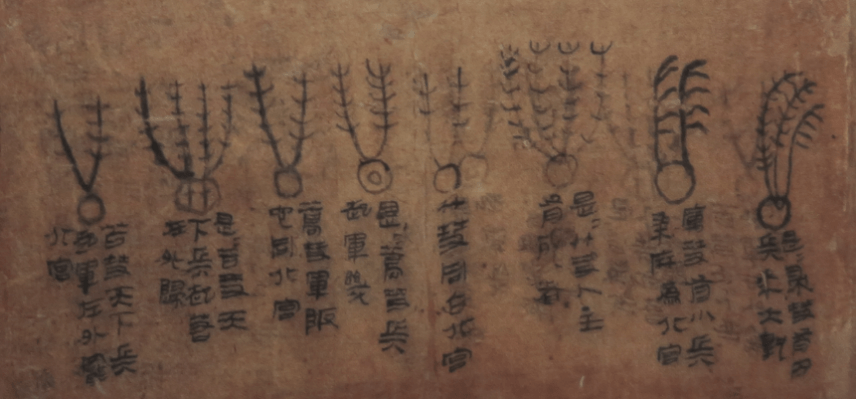 是帚彗有内
兵年大孰
厲彗有小兵
黍麻為北宮
是竹彗人主
有死者
竹彗同占北宮
是蒿彗兵
起軍幾
蒿彗軍阪
它同北宮
是苫彗天
下兵起若
在外歸
苫彗天下兵
起軍在外罷
北宮